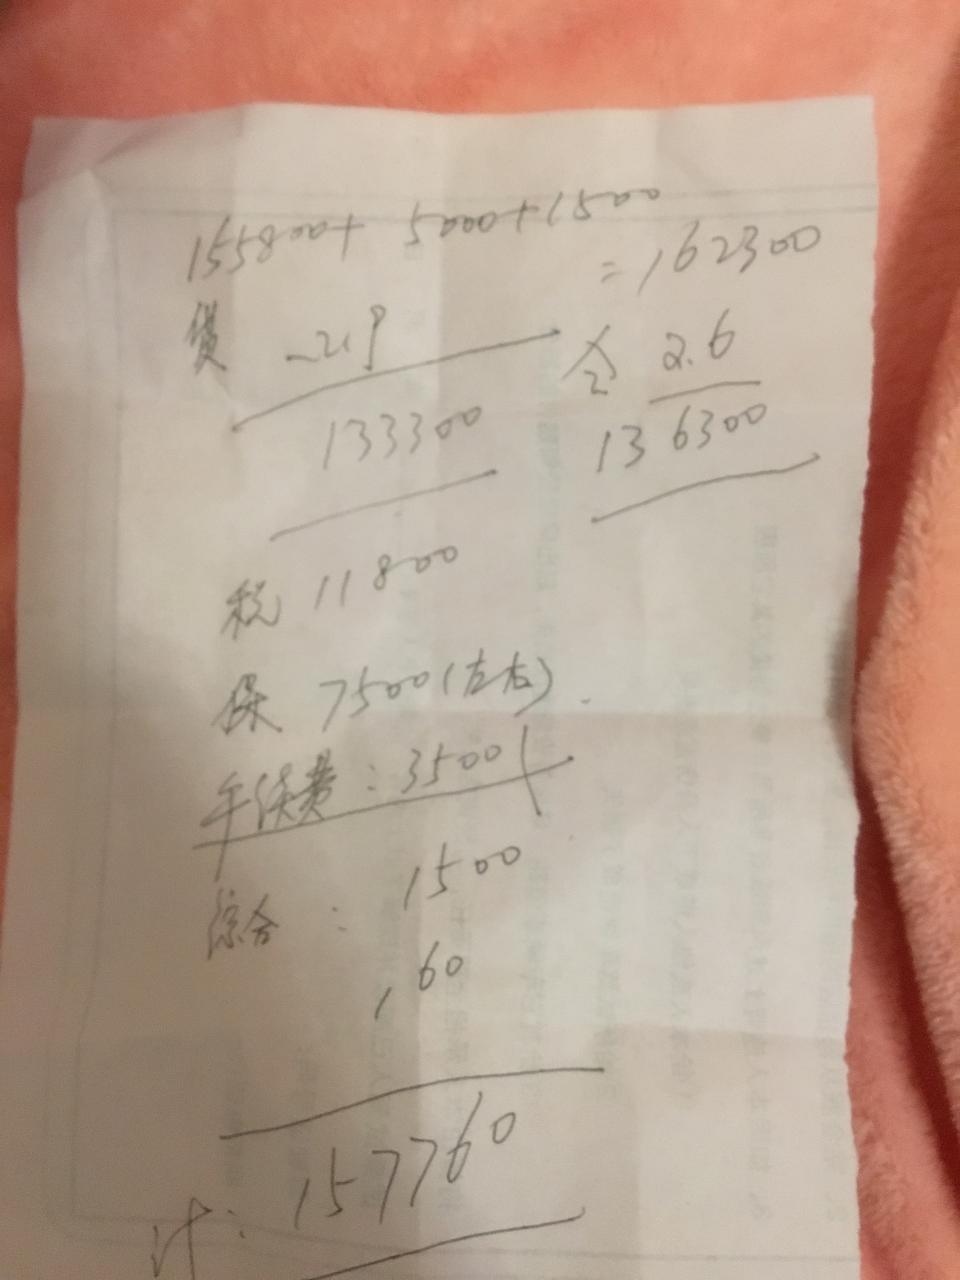 155800+ 5000+1500
=162300
贷 -2.9
全 2.6
133300
136300
税 11800
保 7500(左右).
手续费:3500
综合: 1500
160
计: 157760